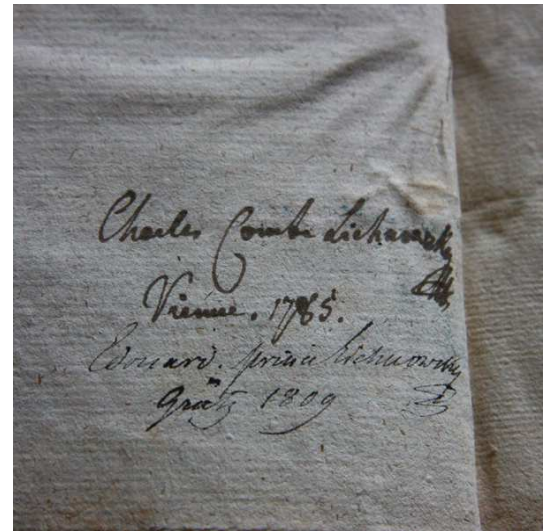 Charles Comte Lichnowsky
Vienne. 1785.
Edouard. prince Lichnowsky
Grätz 1809